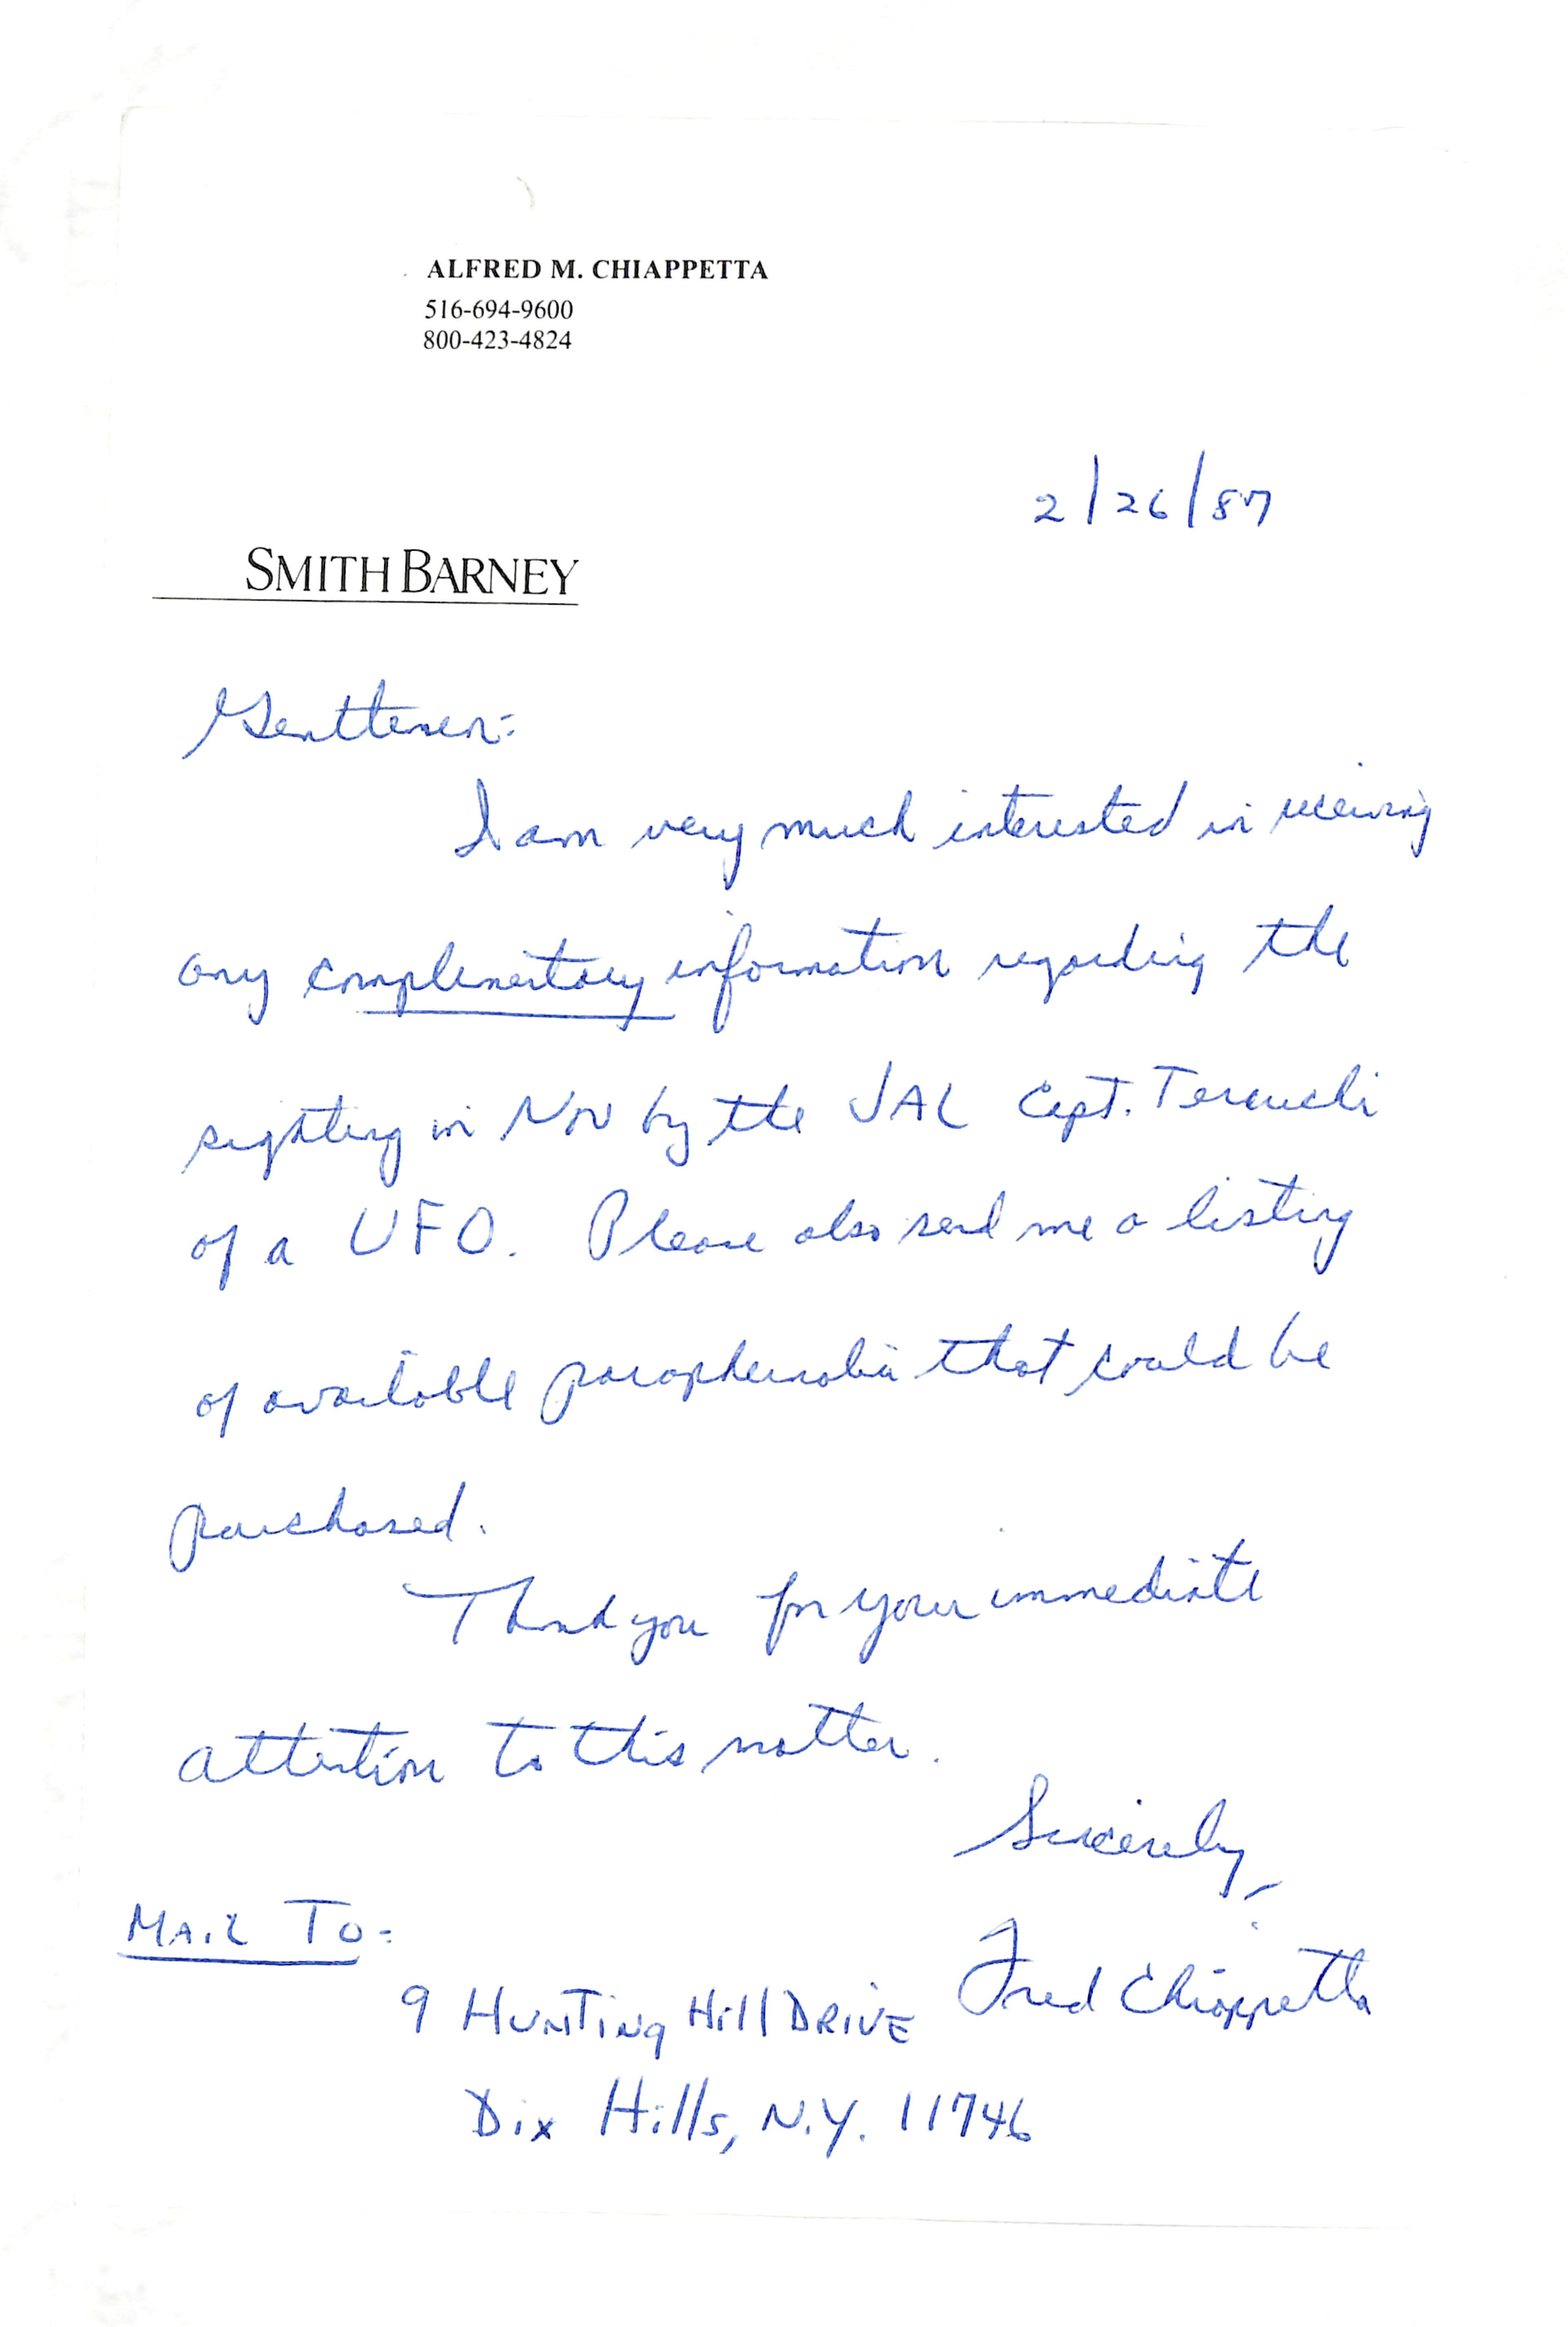 ALFRED M. CHIAPPETTA
516-694-9600
800-423-4824
2/26/87
SMITH BARNEY
Gentlemen:
I am very much interested in receiving
any complimentary information regarding the
sighting in Nov by the JAL Capt. Terauchi
of a UFO. Please also send me a listing
of available paraphernalia that could be
purchased.
Thank you for your immediate
attention to this matter.
Sincerely,
Fred Chiappetta
MAIL TO:
9 HUNTING Hill DRIVE
Dix Hills, N.Y. 11746